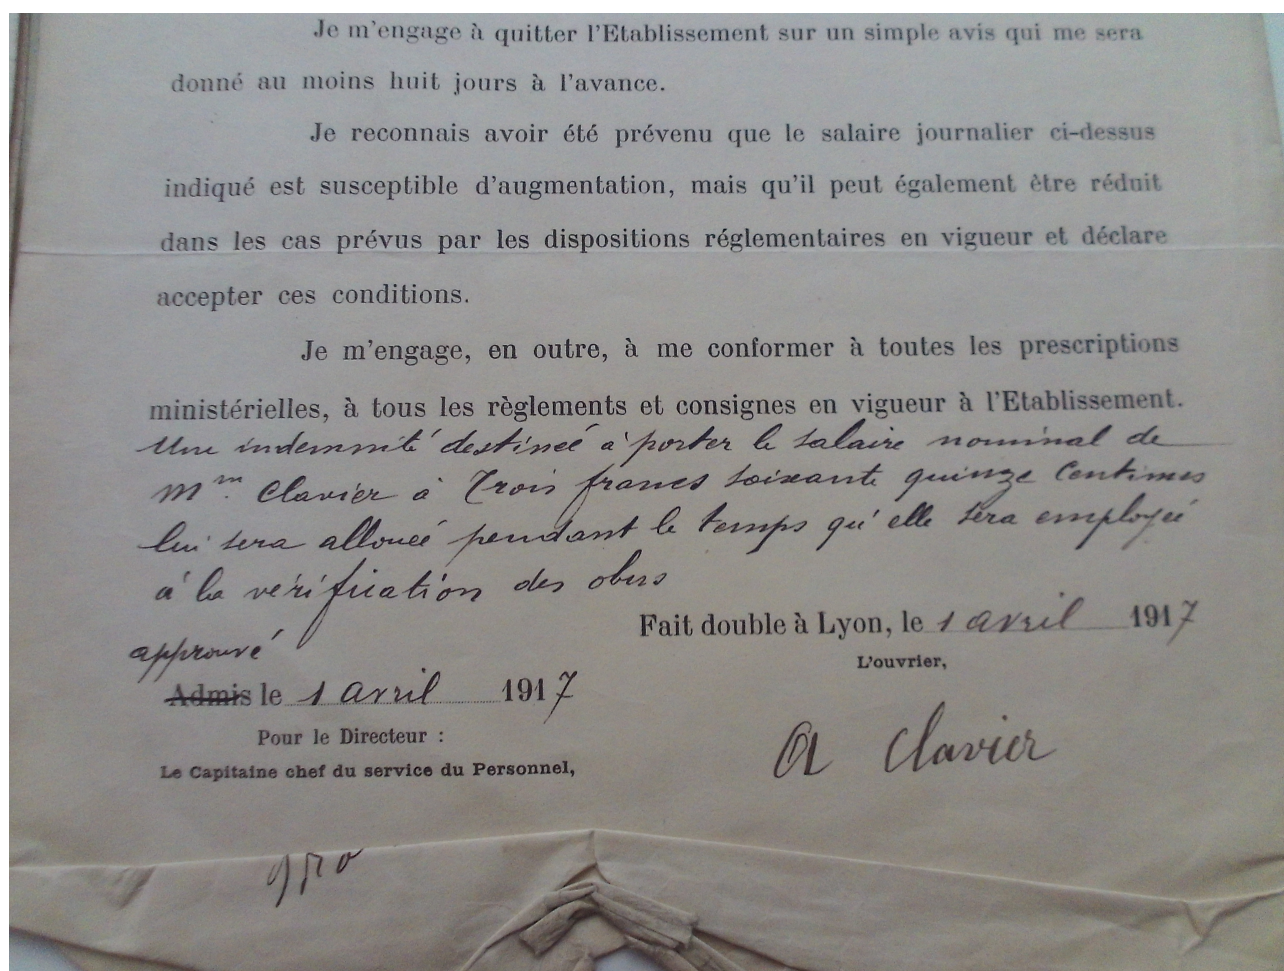 Je m'engage à quitter l'Etablissement sur un simple avis qui me sera
donné au moins huit jours à l'avance.
Je reconnais avoir été prévenu que le salaire journalier ci-dessus
indiqué est susceptible d'augmentation, mais qu'il peut également être réduit
dans les cas prévus par les dispositions réglementaires en vigueur et déclare
accepter ces conditions.
Je m'engage, en outre, à me conformer à toutes les prescriptions
ministérielles, à tous les règlements et consignes en vigueur à l'Etablissement.
Une indemnité destinée à porter le salaire nominal de
Mm. Clavier à Trois francs soixante quinze Centimes
lui sera allouée pendant le temps qu'elle sera employée
à la vérification des obus
Fait double à Lyon, le 1 avril 1917
approuvé
L'ouvrier,
Admis le 1 avril 1917
Pour le Directeur :
A Clavier
Le Capitaine chef du service du Personnel,